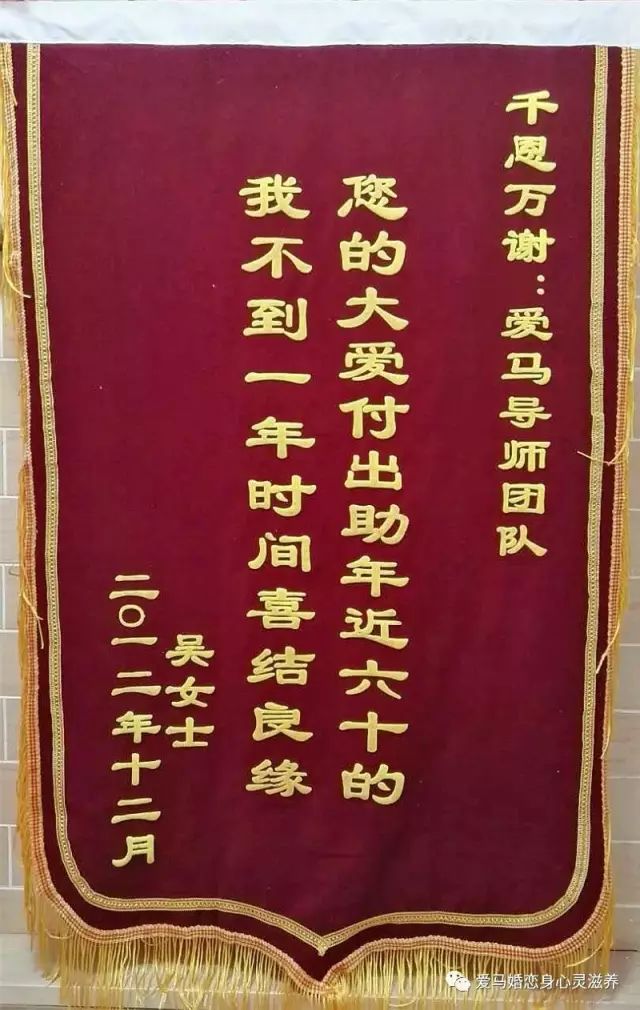 千恩万谢：爱马导师团队
您的大爱付出助年近六十的
我不到一年时间喜结良缘
吴女士
二〇一二年十二月
爱马婚恋身心灵滋养